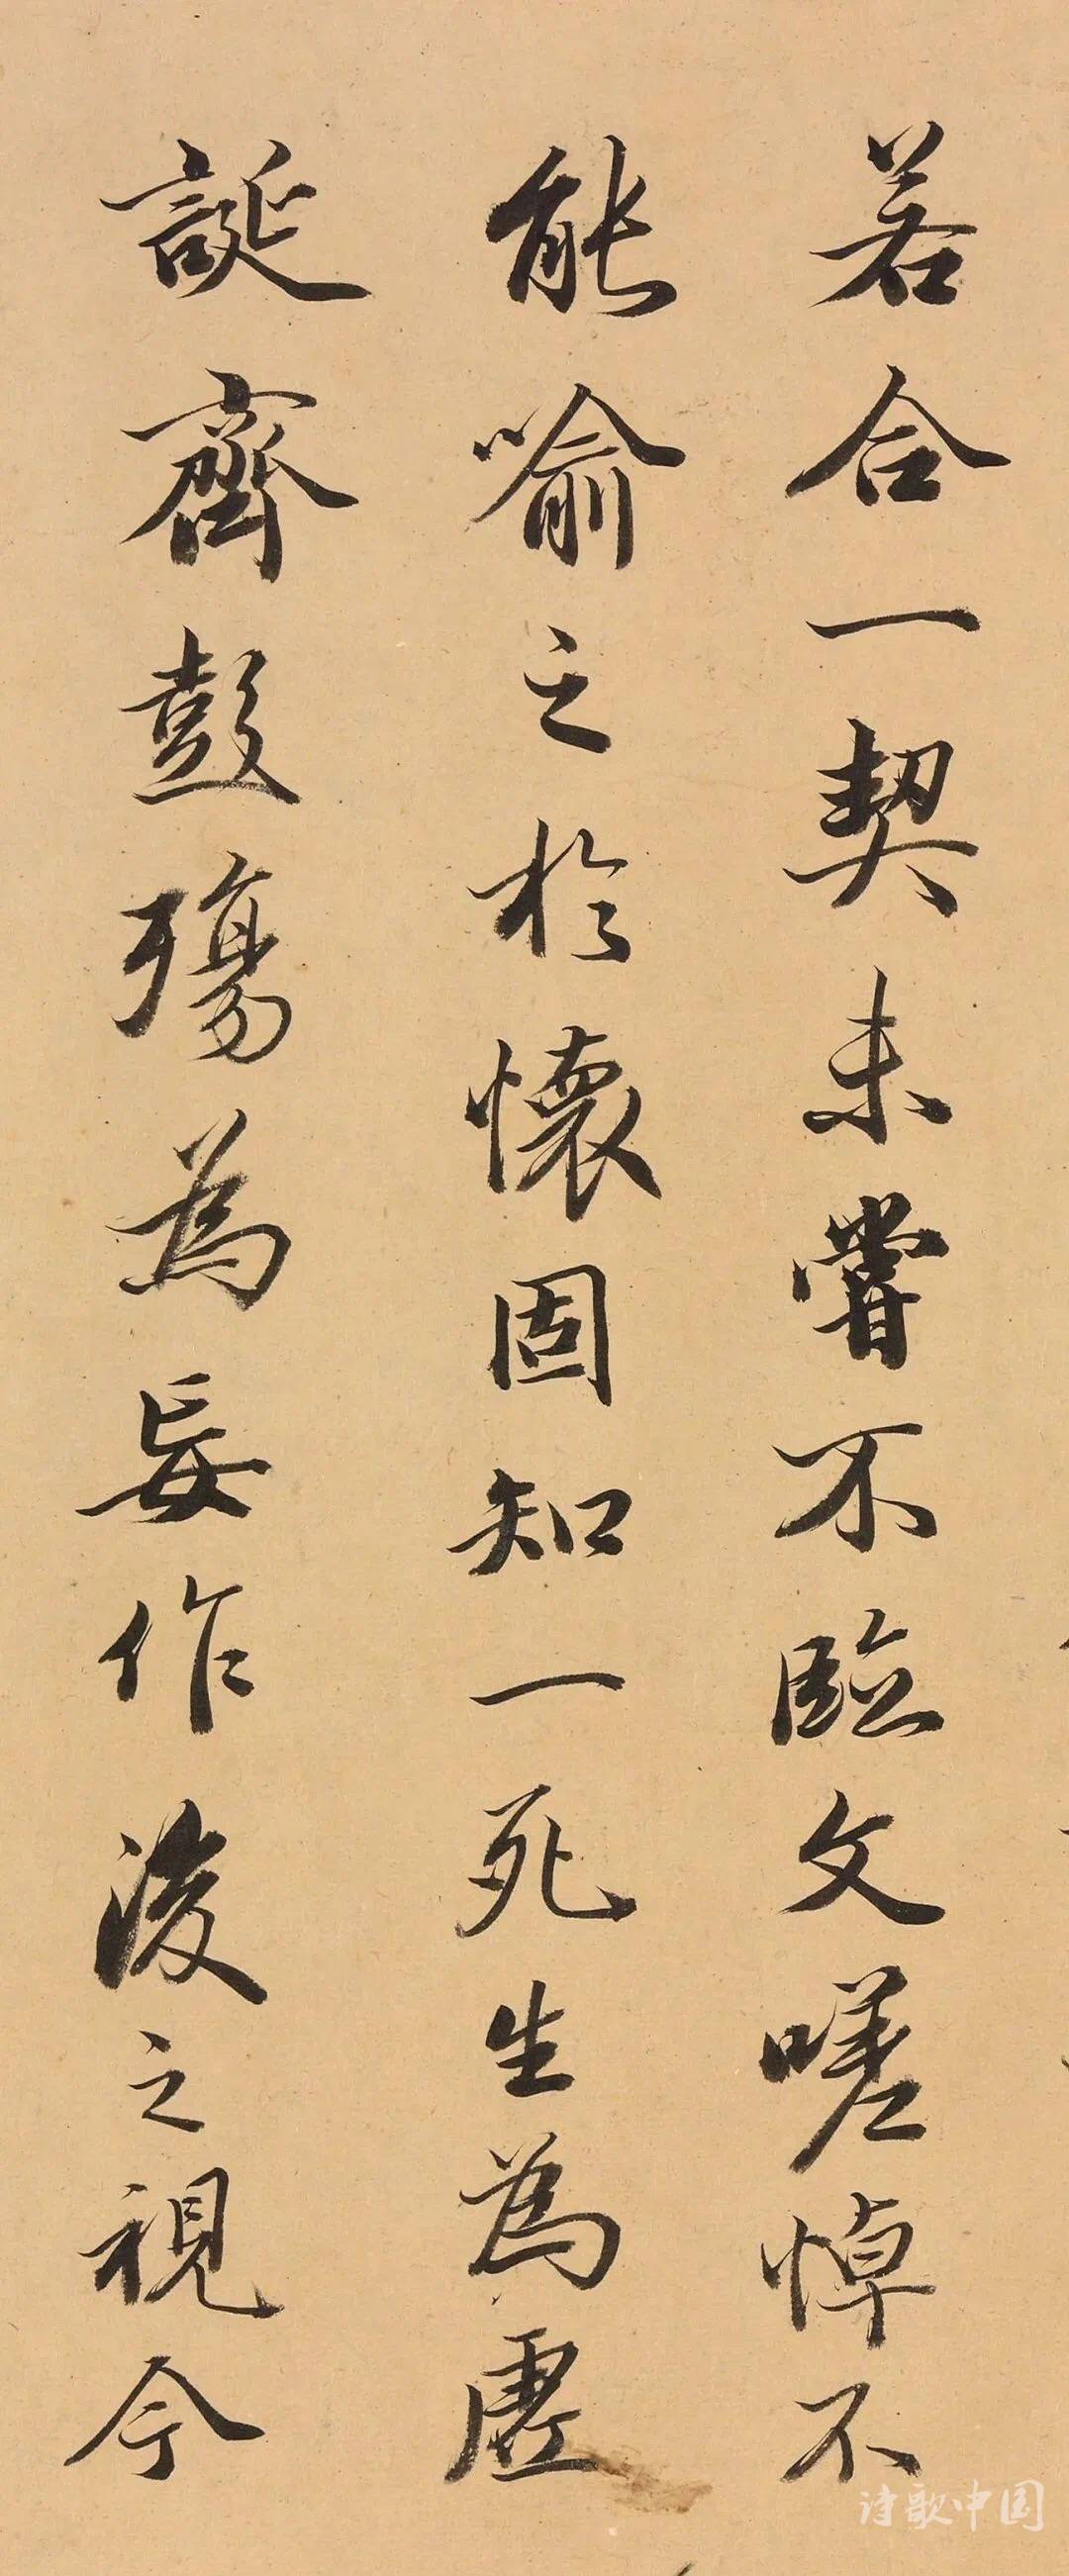 若合一契未嘗不臨文嗟悼不
能喻之於懷固知一死生為虛
誕齊彭殤為妄作後之視今
诗歌中国